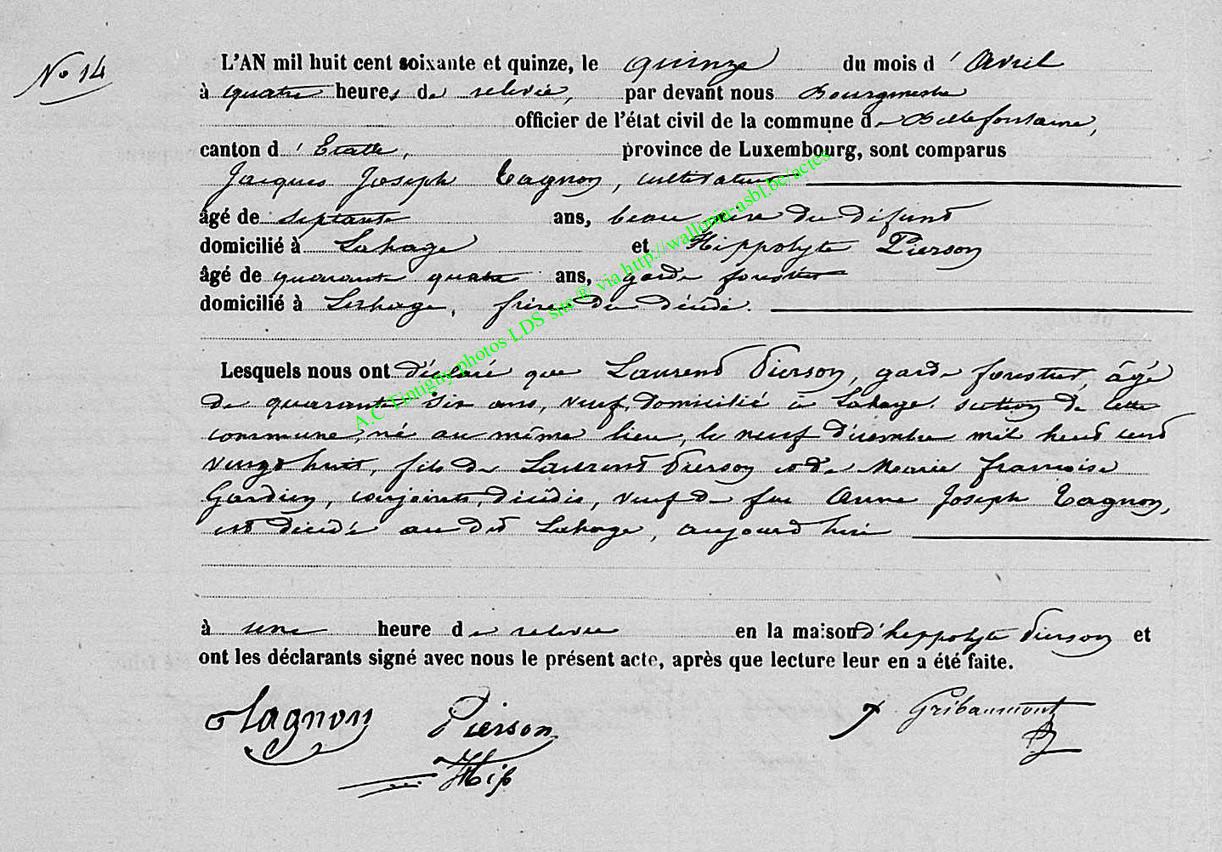 No 14
L'AN mil huit cent soixante et quinze, le quinze du mois d' Avril
à quatre heures de relevée, par devant nous Bourgmestre
officier de l'état civil de la commune de Bellefontaine,
canton d' Etalle, province de Luxembourg, sont comparus
Jacques Joseph Tagnon, cultivateur
âgé de septante ans, beau père du défunt
domicilié à Lahage et Hippolyte Pierson
âgé de quarante quatre ans, garde forestier
domicilié à Lahage, frère du décédé.
Lesquels nous ont déclaré que Laurent Pierson, garde forestier, âgé
de quarante six ans, veuf, domicilié à Lahage, section de cette
commune, né au même lieu, le neuf décembre mil huit cent
vingt huit, fils de Laurent Pierson et de Marie françoise
conjoints décédés, veuf de feu Anne Joseph Tagnon,
est décédé au dit Lahage, aujourd'hui
à une heure de relevée en la maison d'hippolyte Pierson et
ont les déclarants signé avec nous le présent acte, après que lecture leur en a été faite.
Tagnon Pierson Gribaumont
Hip
A.C Tintigny photos LDS site ® via http://wallonia-asbl.be/actes